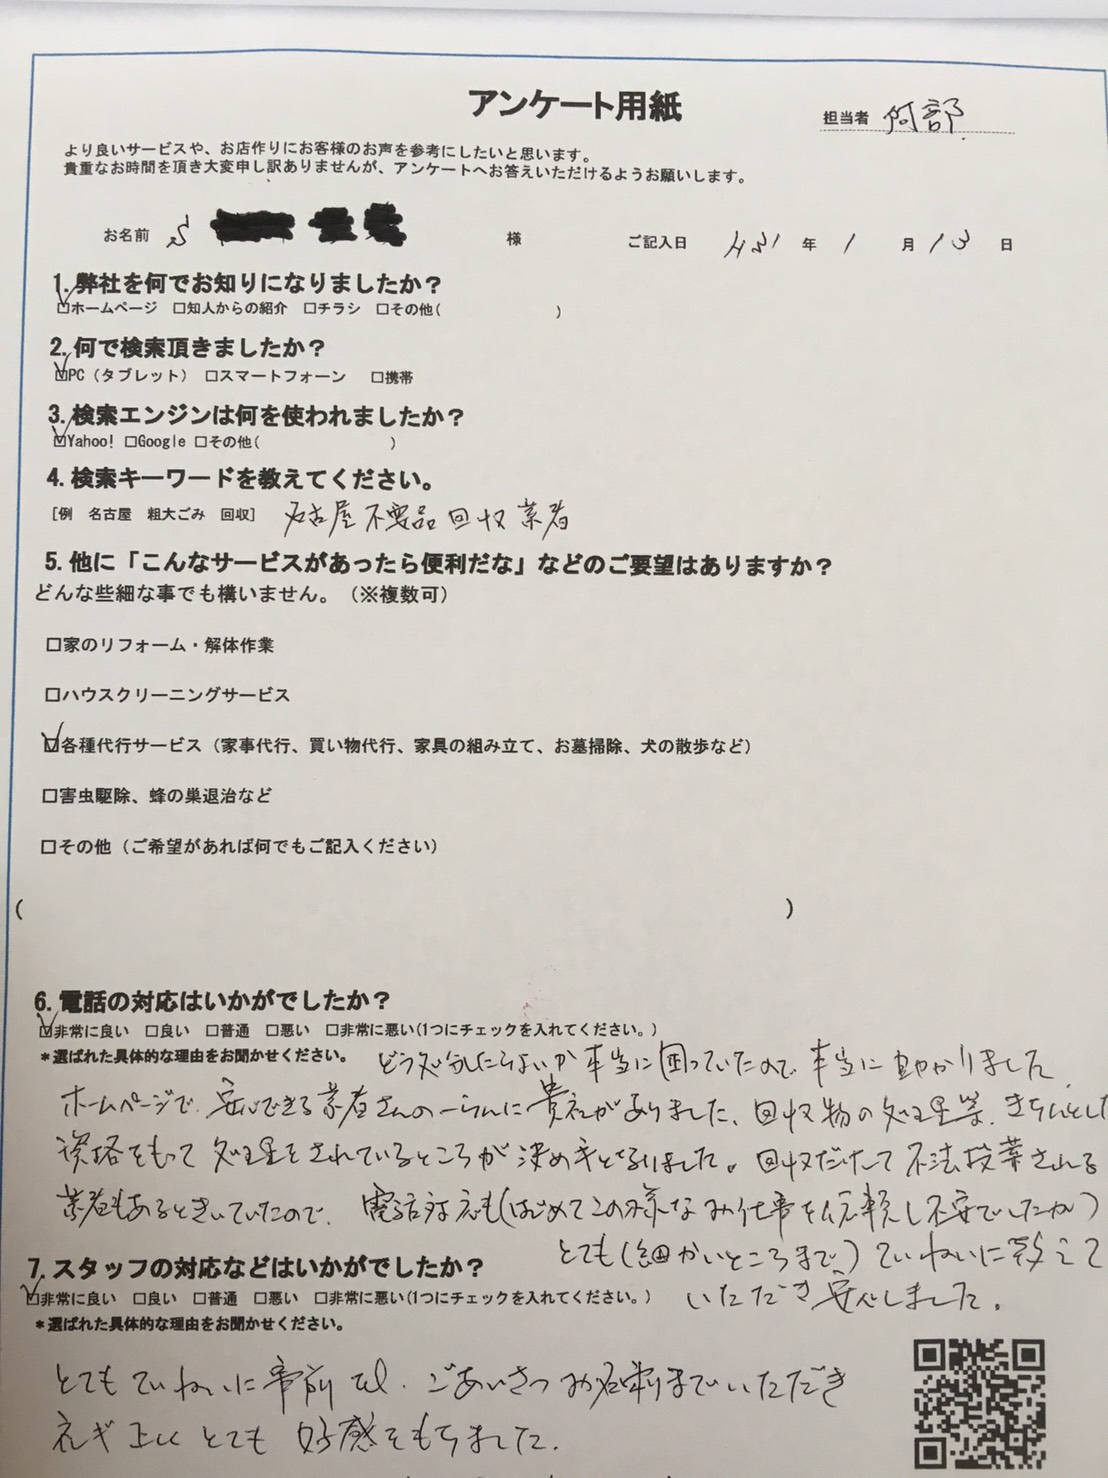 アンケート用紙
担当者 阿部
より良いサービスや、お店作りにお客様のお声を参考にしたいと思います。
貴重なお時間を頂き大変申し訳ありませんが、アンケートへお答えいただけるようお願いします。
お名前 S 様 ご記入日 H31 年 1 月 13 日
1. 弊社を何でお知りになりましたか？
☑ホームページ □知人からの紹介 □チラシ □その他( )
2. 何で検索頂きましたか？
☑PC（タブレット） □スマートフォーン □携帯
3. 検索エンジンは何を使われましたか？
☑Yahoo! □Google □その他( )
4. 検索キーワードを教えてください。
[例 名古屋 粗大ごみ 回収] 名古屋 不要品 回収 業者
5. 他に「こんなサービスがあったら便利だな」などのご要望はありますか？
どんな些細な事でも構いません。（※複数可）
□家のリフォーム・解体作業
□ハウスクリーニングサービス
☑各種代行サービス（家事代行、買い物代行、家具の組み立て、お墓掃除、犬の散歩など）
□害虫駆除、蜂の巣退治など
□その他（ご希望があれば何でもご記入ください）
( )
6. 電話の対応はいかがでしたか？
☑非常に良い □良い □普通 □悪い □非常に悪い(1つにチェックを入れてください。)
*選ばれた具体的な理由をお聞かせください。 どう処分したらよいか本当に困っていたので、本当に助かりました。
ホームページで、安心できる業者さんの一らんに貴社がありました、回収物の処理等、きちんとした
資格をもって処理をされているところが決め手となりました。回収だけして不法投棄される
業者もあるときいていたので、電話対応も(はじめてこの様なお仕事を依頼し不安でしたが)
とても(細かいところまで)ていねいに教えて
いただき安心しました。
7. スタッフの対応などはいかがでしたか？
☑非常に良い □良い □普通 □悪い □非常に悪い(1つにチェックを入れてください。)
*選ばれた具体的な理由をお聞かせください。
とてもていねいに事前Tel、ごあいさつ お名刺までいただき
礼ギ正しくとても好感をもちました。